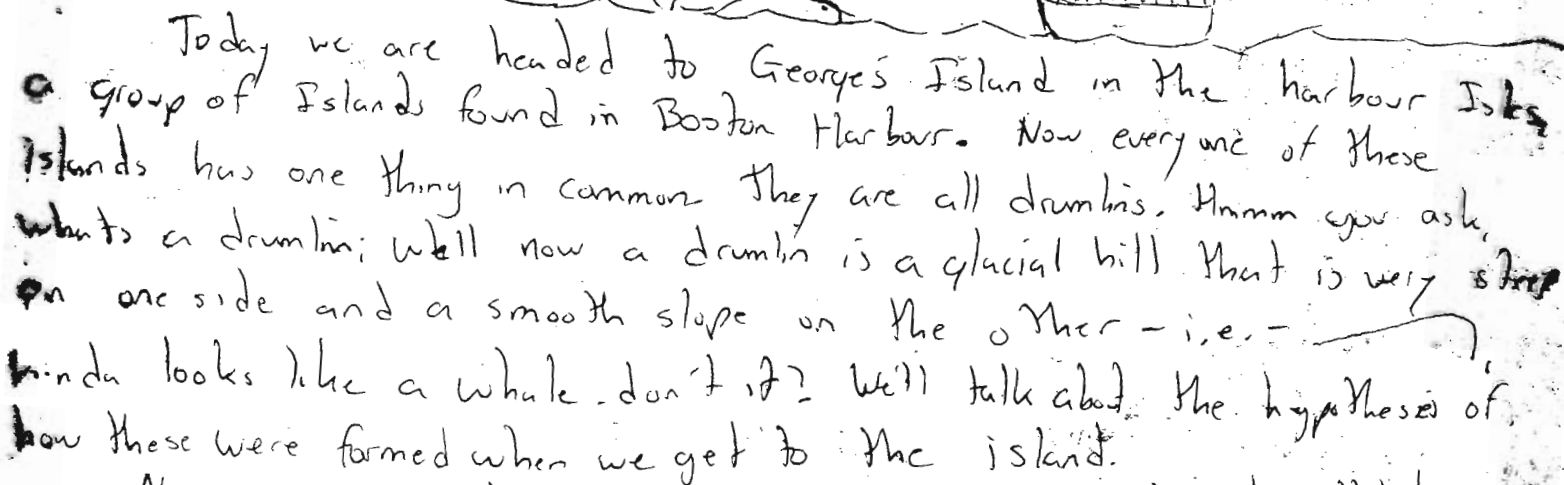 Today we are headed to George's Island in the harbour Isles,
a group of Islands found in Boston Harbour. Now every one of these
islands has one thing in common they are all drumlins. Hmmm you ask,
whats a drumlin; well now a drumlin is a glacial hill that is very steep
on one side and a smooth slope on the other - i.e. -
kinda looks like a whale don't it? We'll talk about the hypotheses of
how these were formed when we get to the island.